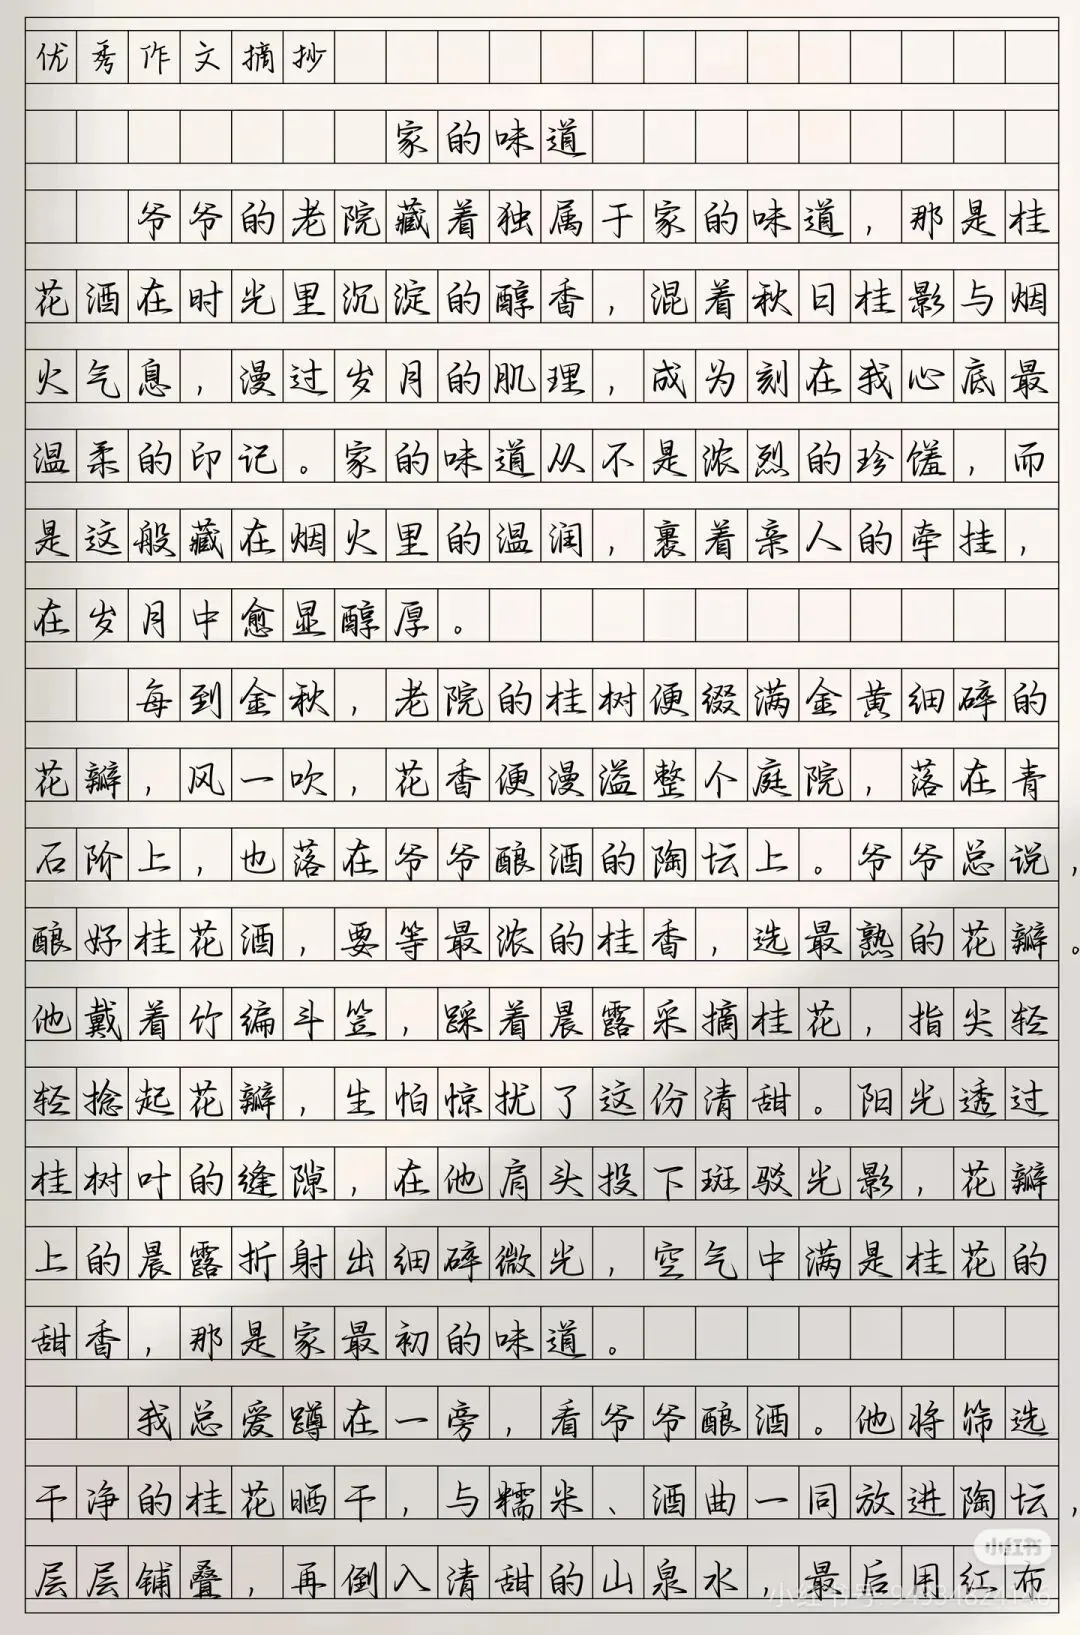 优秀作文摘抄
家的味道
爷爷的老院藏着独属于家的味道，那是桂
花酒在时光里沉淀的醇香，混着秋日桂影与烟
火气息，漫过岁月的肌理，成为刻在我心底最
温柔的印记。家的味道从不是浓烈的珍馐，而
是这般藏在烟火里的温润，裹着亲人的牵挂，
在岁月中愈显醇厚。
每到金秋，老院的桂树便缀满金黄细碎的
花瓣，风一吹，花香便漫溢整个庭院，落在青
石阶上，也落在爷爷酿酒的陶坛上。爷爷总说，
酿好桂花酒，要等最浓的桂香，选最熟的花瓣。
他戴着竹编斗笠，踩着晨露采摘桂花，指尖轻
轻捻起花瓣，生怕惊扰了这份清甜。阳光透过
桂树叶的缝隙，在他肩头投下斑驳光影，花瓣
上的晨露折射出细碎微光，空气中满是桂花的
甜香，那是家最初的味道。
我总爱蹲在一旁，看爷爷酿酒。他将筛选
干净的桂花晒干，与糯米、酒曲一同放进陶坛，
层层铺叠，再倒入清甜的山泉水，最后用红布
小红书
小红书号: